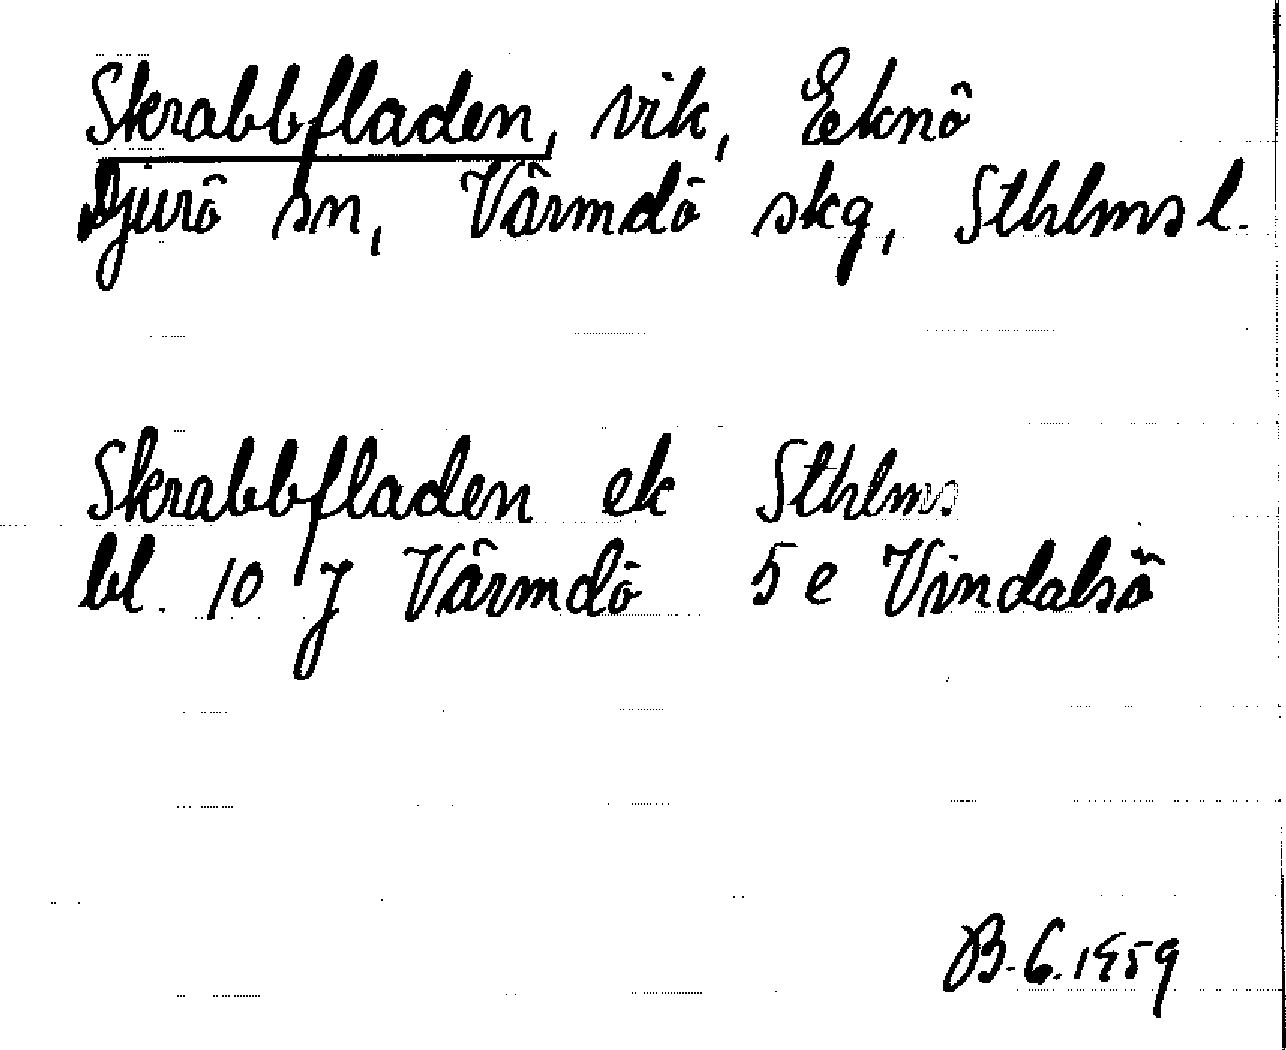 Skrabbfladen, vik, Eknö
Djurö sn, Värmdö skg, Sthlms l.
Skrabbfladen ek Sthlms
bl. 10 J Värmdö 5 e Vindalsö
B. G. 1959